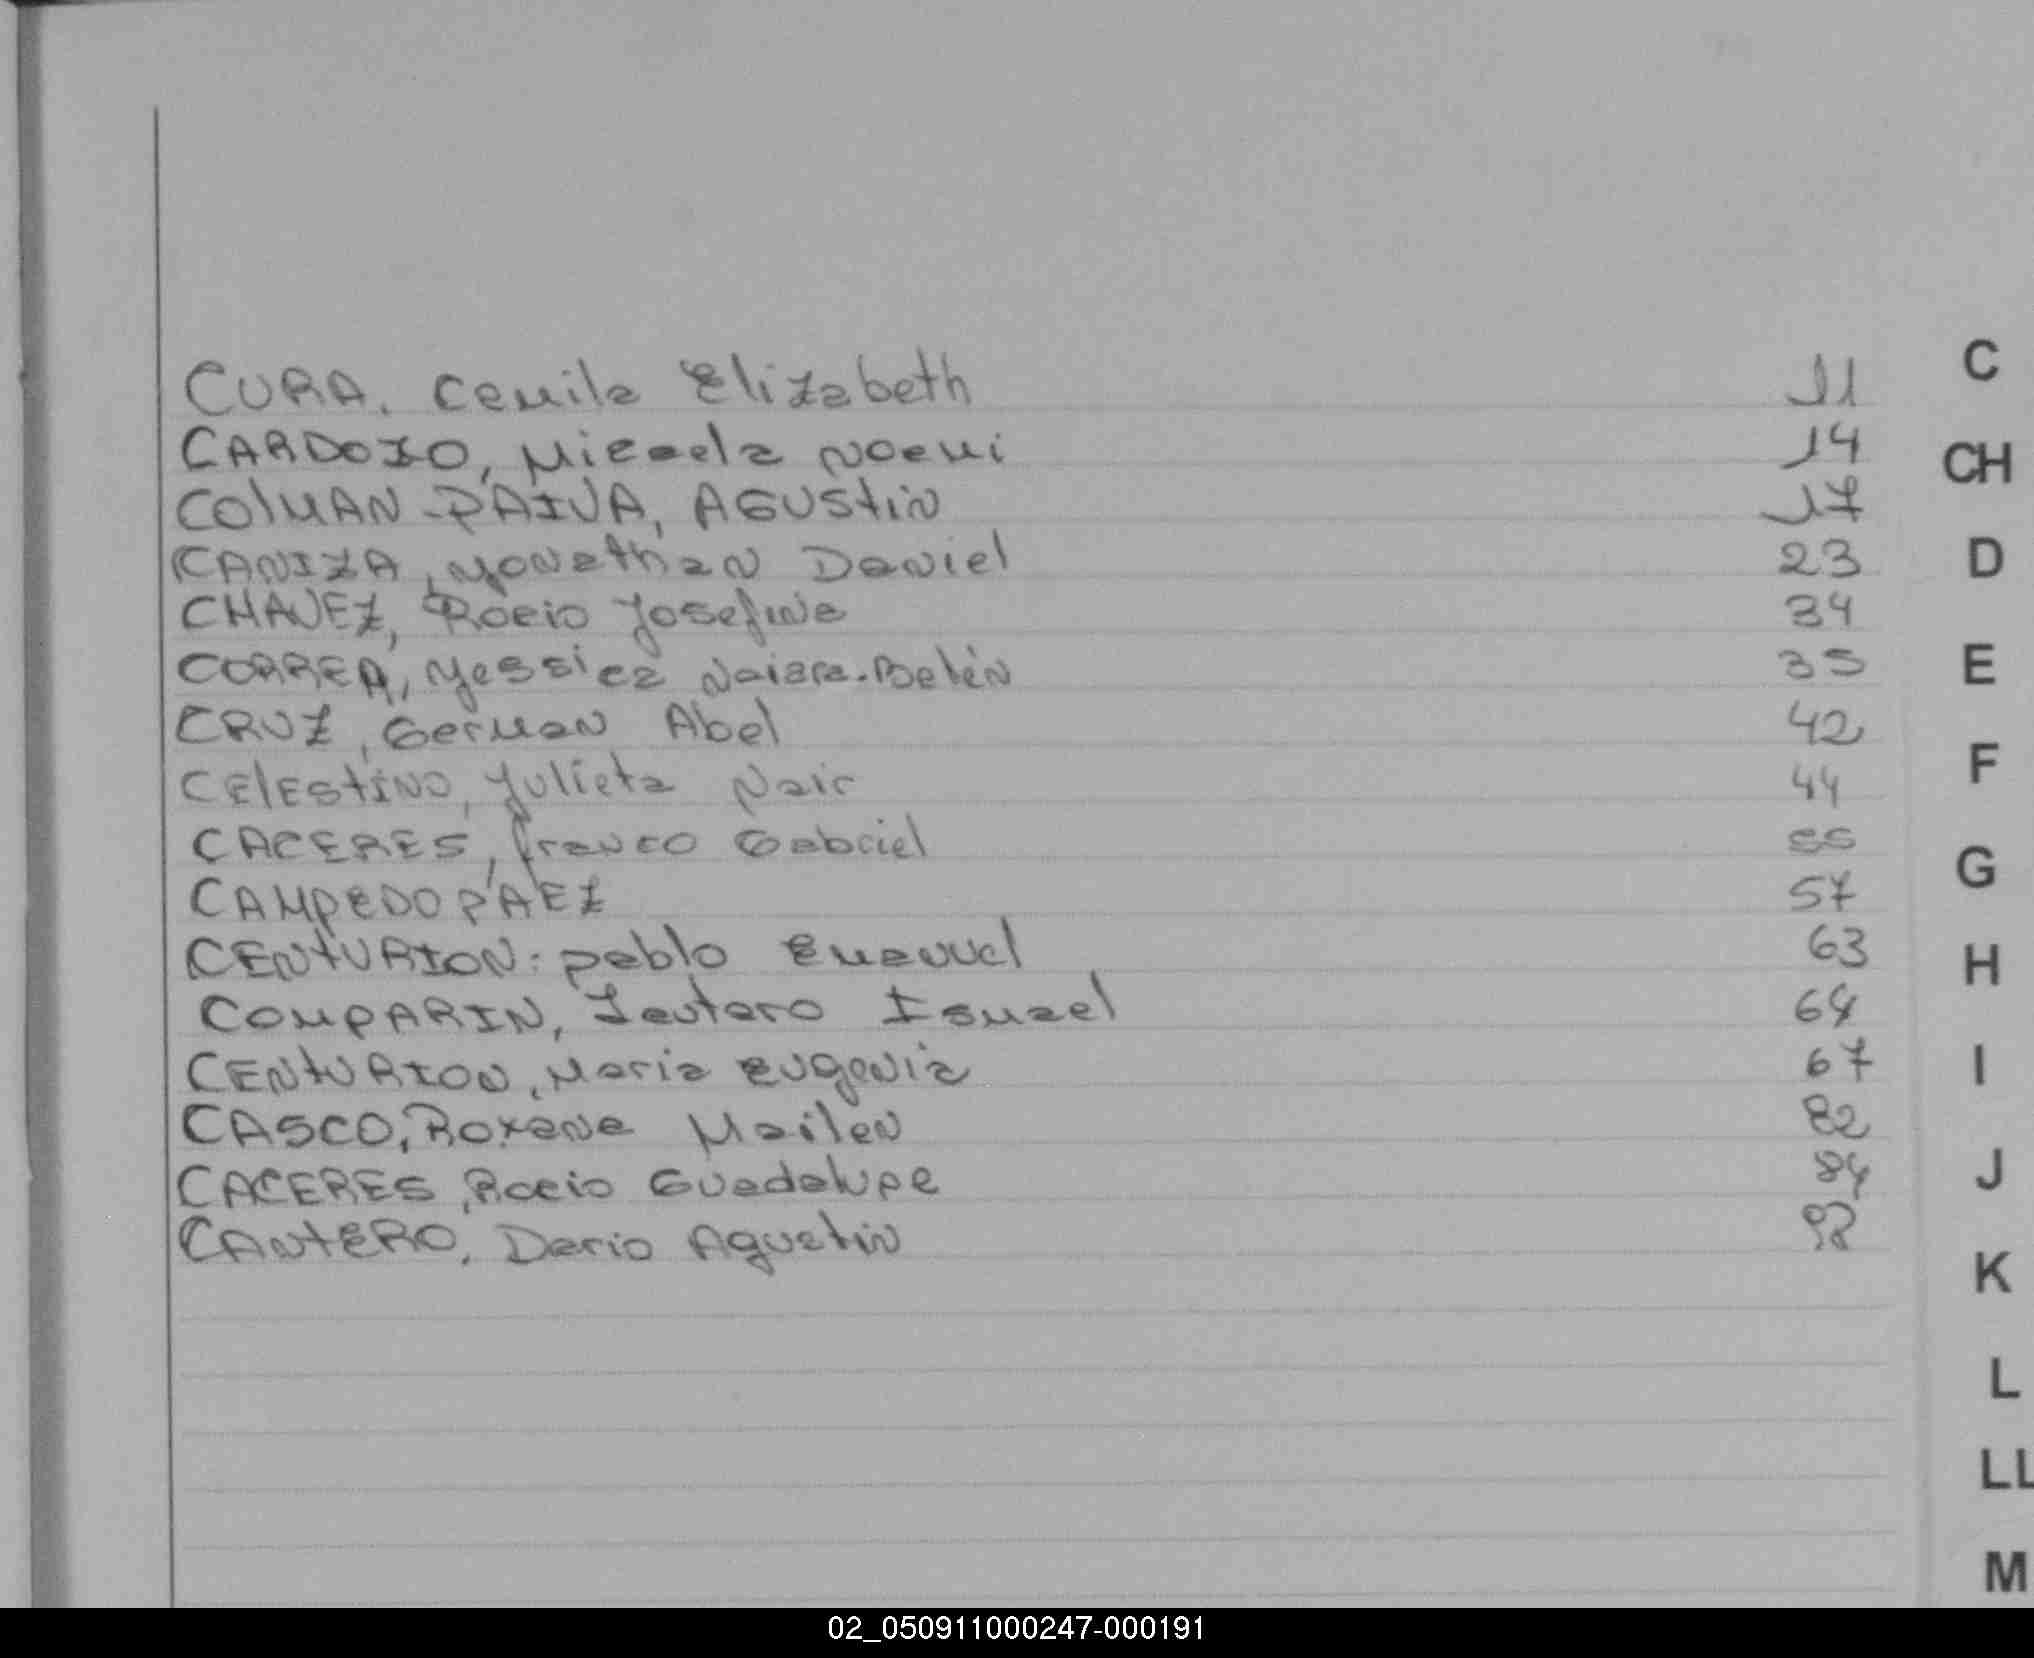 CURA, Camila Elizabeth 11
CARDOZO, Micaela Noemi 14
COlMAN-PAIVA, AGUStiN 17
CANIZA, Yonathan Daniel 23
CHAVEZ, Rocio Josefina 34
CORREA, Yessica Naiara-Belén 35
CRUZ, German Abel 42
CElEStiNO, Julieta Nair 44
CACERES, franco Gabriel 55
CAMpEDO PAEZ 57
CENtURION: pablo Emanuel 63
COMPARIN, Lautaro Ismael 64
CENtURION, Maria Eugenia 67
CASCO, Roxana Mailen 82
CACERES, Rocio Guadalupe 84
CANtERO, Dario Agustin 92
C
CH
D
E
F
G
H
I
J
K
L
LL
M
02_050911000247-000191